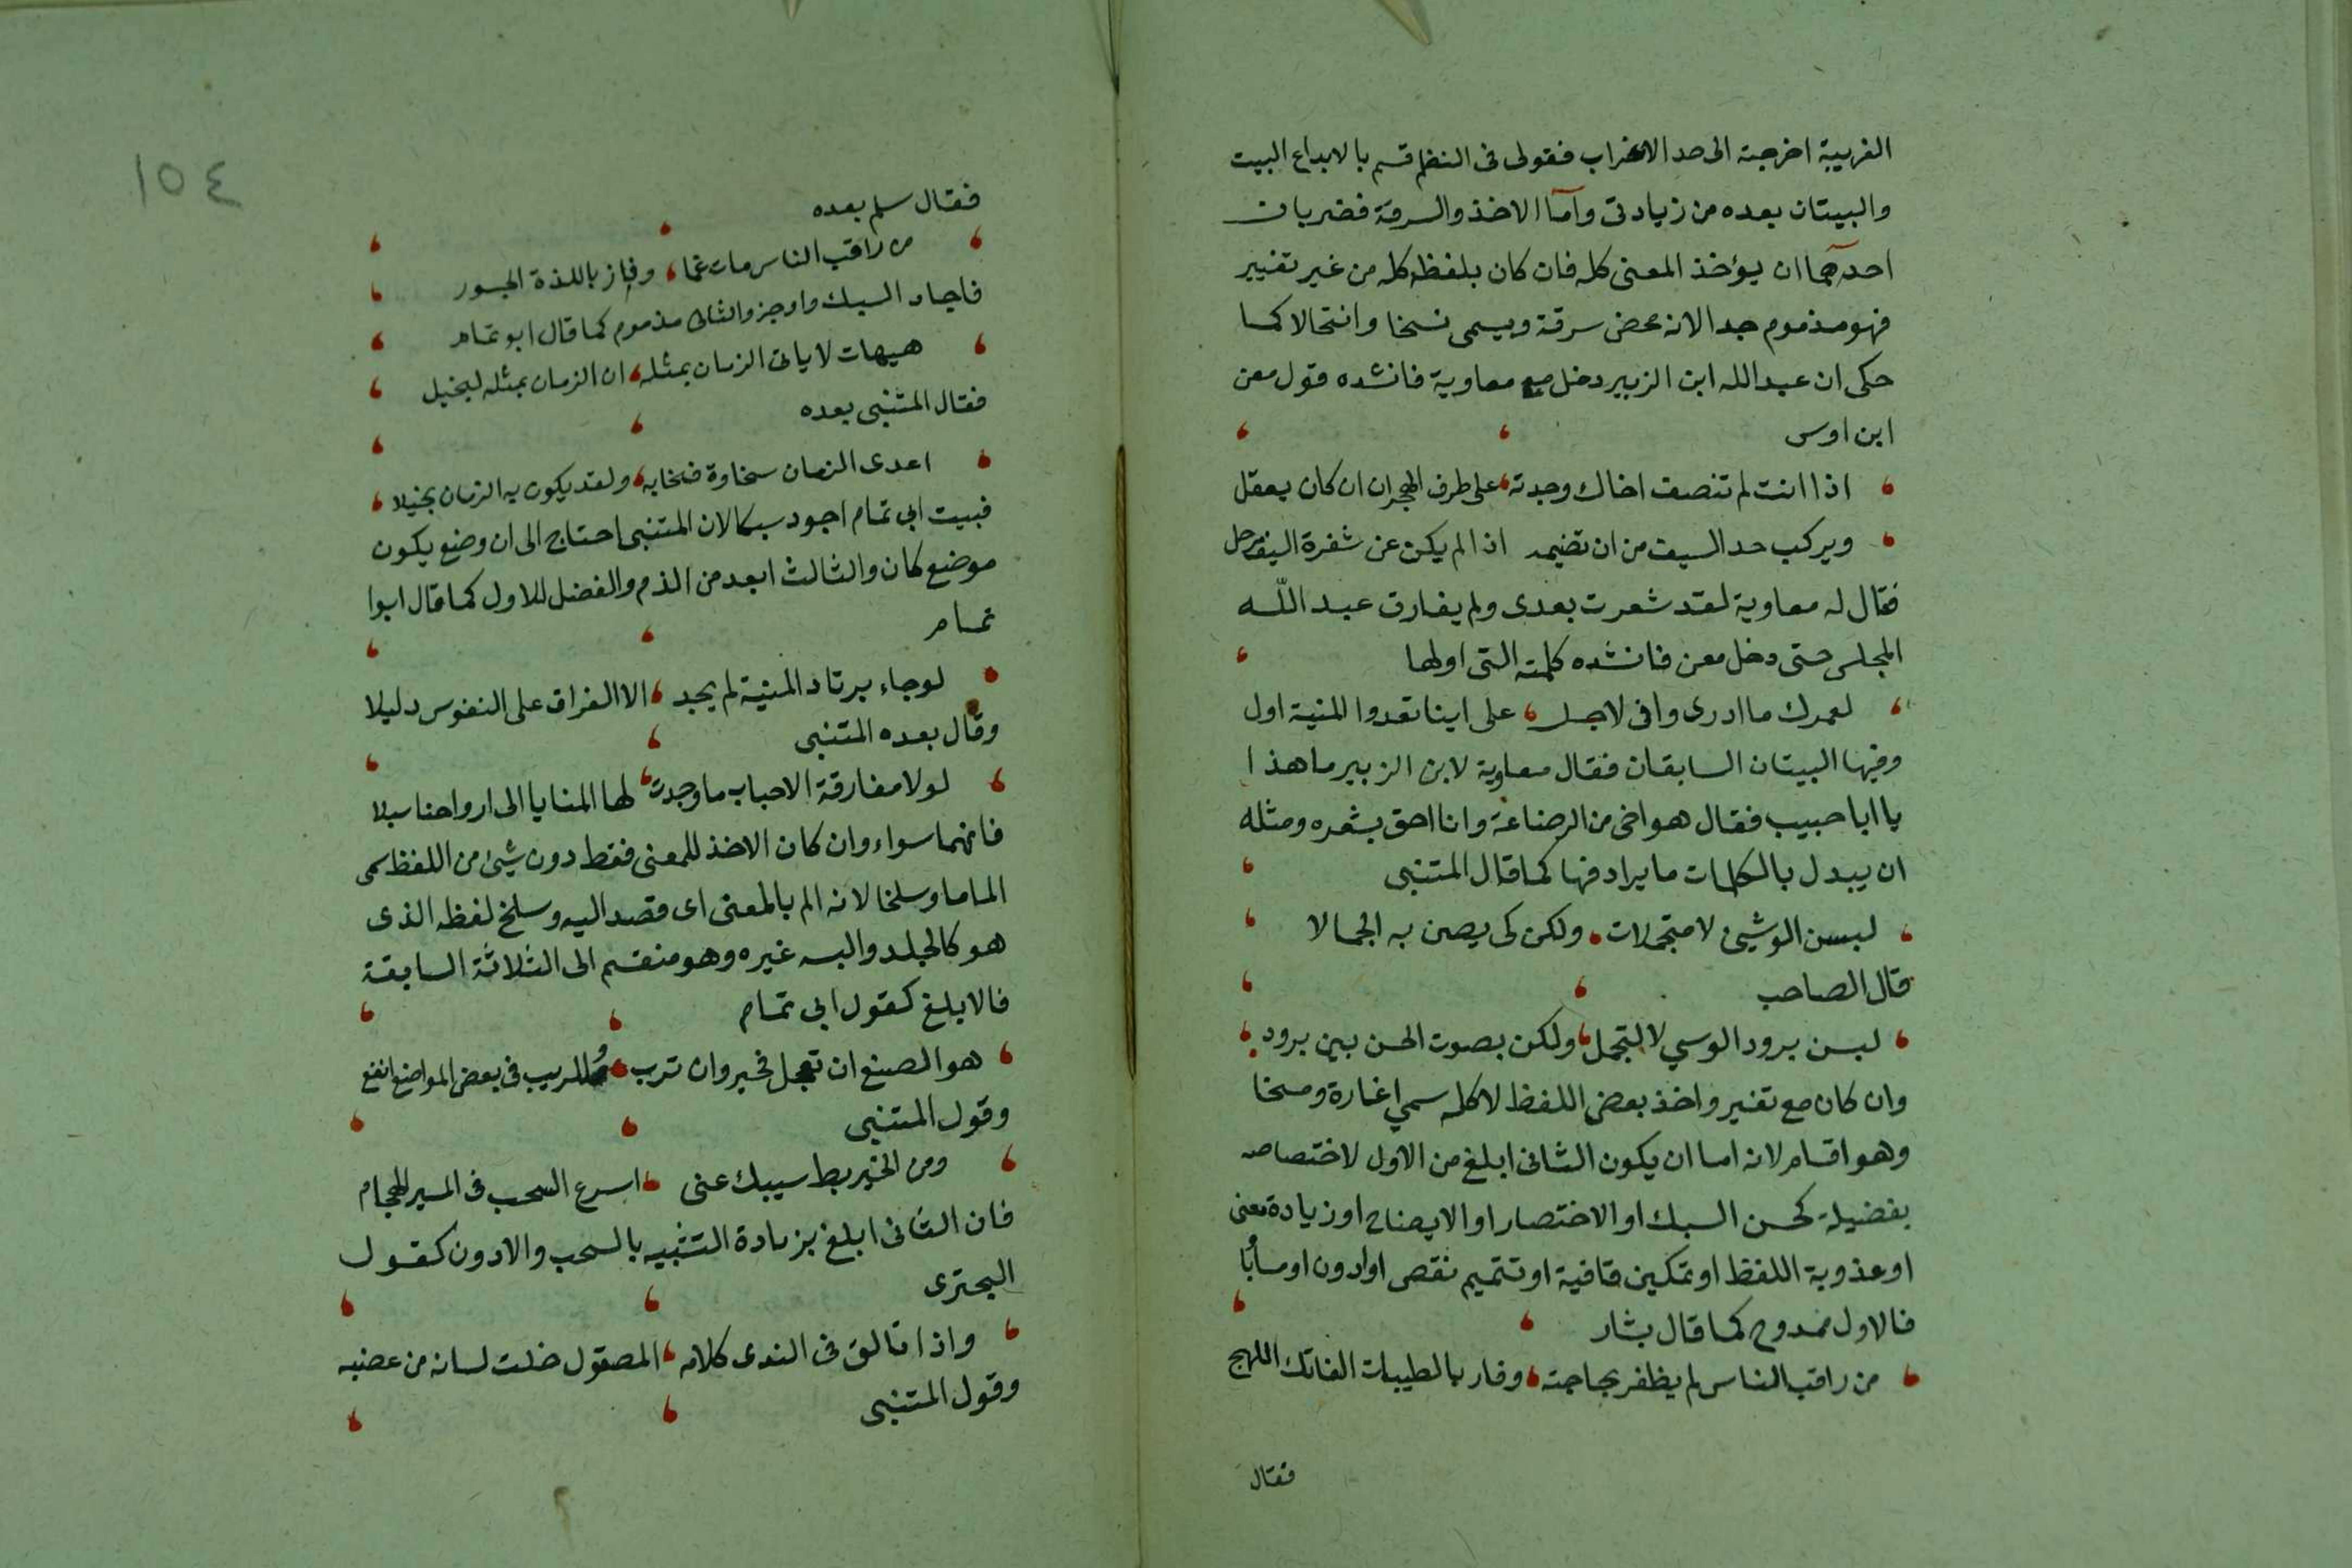 الغريبة اخرجته الى حد الاغراب فقولى فى النظم قسم بالابداع البيت
والبيتان بعده من زيادتى وأما الاخذ والسرقة فضربان
احدهما ان يؤخذ المعنى كله فان كان بلفظه كله من غير تغيير
فهو مذموم جدا لانه محض سرقة ويسمى نسخا وانتحالا كما
حكى ان عبد الله ابن الزبير دخل مع معاوية فانشده قول معن
ابن اوس
اذا انت لم تنصف اخاك وجدته على طرف الهجران ان كان يعقل
ويركب حد السيف من ان تضيمه اذا لم يكن عن شفرة السيف مزحل
فقال له معاوية لقد شعرت بعدى ولم يفارق عبد اللّه
المجلس حتى دخل معن فانشده كلمته التى اولها
لعمرك ما ادرى وانى لاوجل على اينا تعدوا المنية اول
وفيها البيتان السابقان فقال معاوية لابن الزبير ما هذا
يا ابا حبيب فقال هو اخى من الرضاعة وانا احق بشعره ومثله
ان يبدل بالكلمات ما يرادفها كما قال المتنبى
لبسن الوشئ لا متجملات ولكن كى يصن به الجمالا
قال الصاحب
لبسن برود الوسي لا لتجمل ولكن بصوت الحسن بين برود
وان كان مع تغيير واخذ بعض اللفظ لا كله سمي اغارة ومسخا
وهو اقسام لانه اما ان يكون الثانى ابلغ من الاول لاختصاصه
بفضيلة كحسن السبك او الاختصار او الايضاح او زيادة معنى
او عذوبة اللفظ او تمكين قافية او تتميم نقص او ادون او مسأبا
فالاول ممدوح كما قال بشار
من راقب الناس لم يظفر بحاجته وفاز بالطيبات الفاتك اللهج
فقال
١٥٤
فقال سلم بعده
من راقب الناس مات غما وفاز باللذة الجسور
فاجاد السبك واوجز والثانى مذموم كما قال ابو تمام
هيهات لا ياتى الزمان بمثله ان الزمان بمثله لبخيل
فقال المتنبى بعده
اعدى الزمان سخاوة فسخابه ولقد يكون به الزمان بخيلا
فبيت ابى تمام اجود سبكا لان المتنبى احتاج الى ان وضع يكون
موضع كان والثالث ابعد من الذم والفضل للاول كما قال ابوا
تمام
لو جاء يرتاد المنية لم يجد الا الفراق على النفوس دليلا
وقال بعده المتنبى
لولا مفارقة الاحباب ما وجدت لها المنايا الى ارواحنا سبلا
فانهما سواء وان كان الاخذ للمعنى فقط دون شيئ من اللفظ سمى
الماما وسلخا لانه الم بالمعنى اى قصد اليه وسلخ لفظه الذى
هو كالجلد والبسه غيره وهو منقسم الى الثلاثة السابقة
فالابلغ كقول ابى تمام
هو الصنع ان تعجل فخير وان ترب وللريب فى بعض المواضع انفع
وقول المتنبى
ومن الخير بط سيبك عنى اسرع السحب فى المسير الجهام
فان الثانى ابلغ بزيادة التشبيه بالسحب والادون كقول
البحترى
واذا تالق فى الندى كلامه المصقول خلت لسانه من عضبه
وقول المتنبى